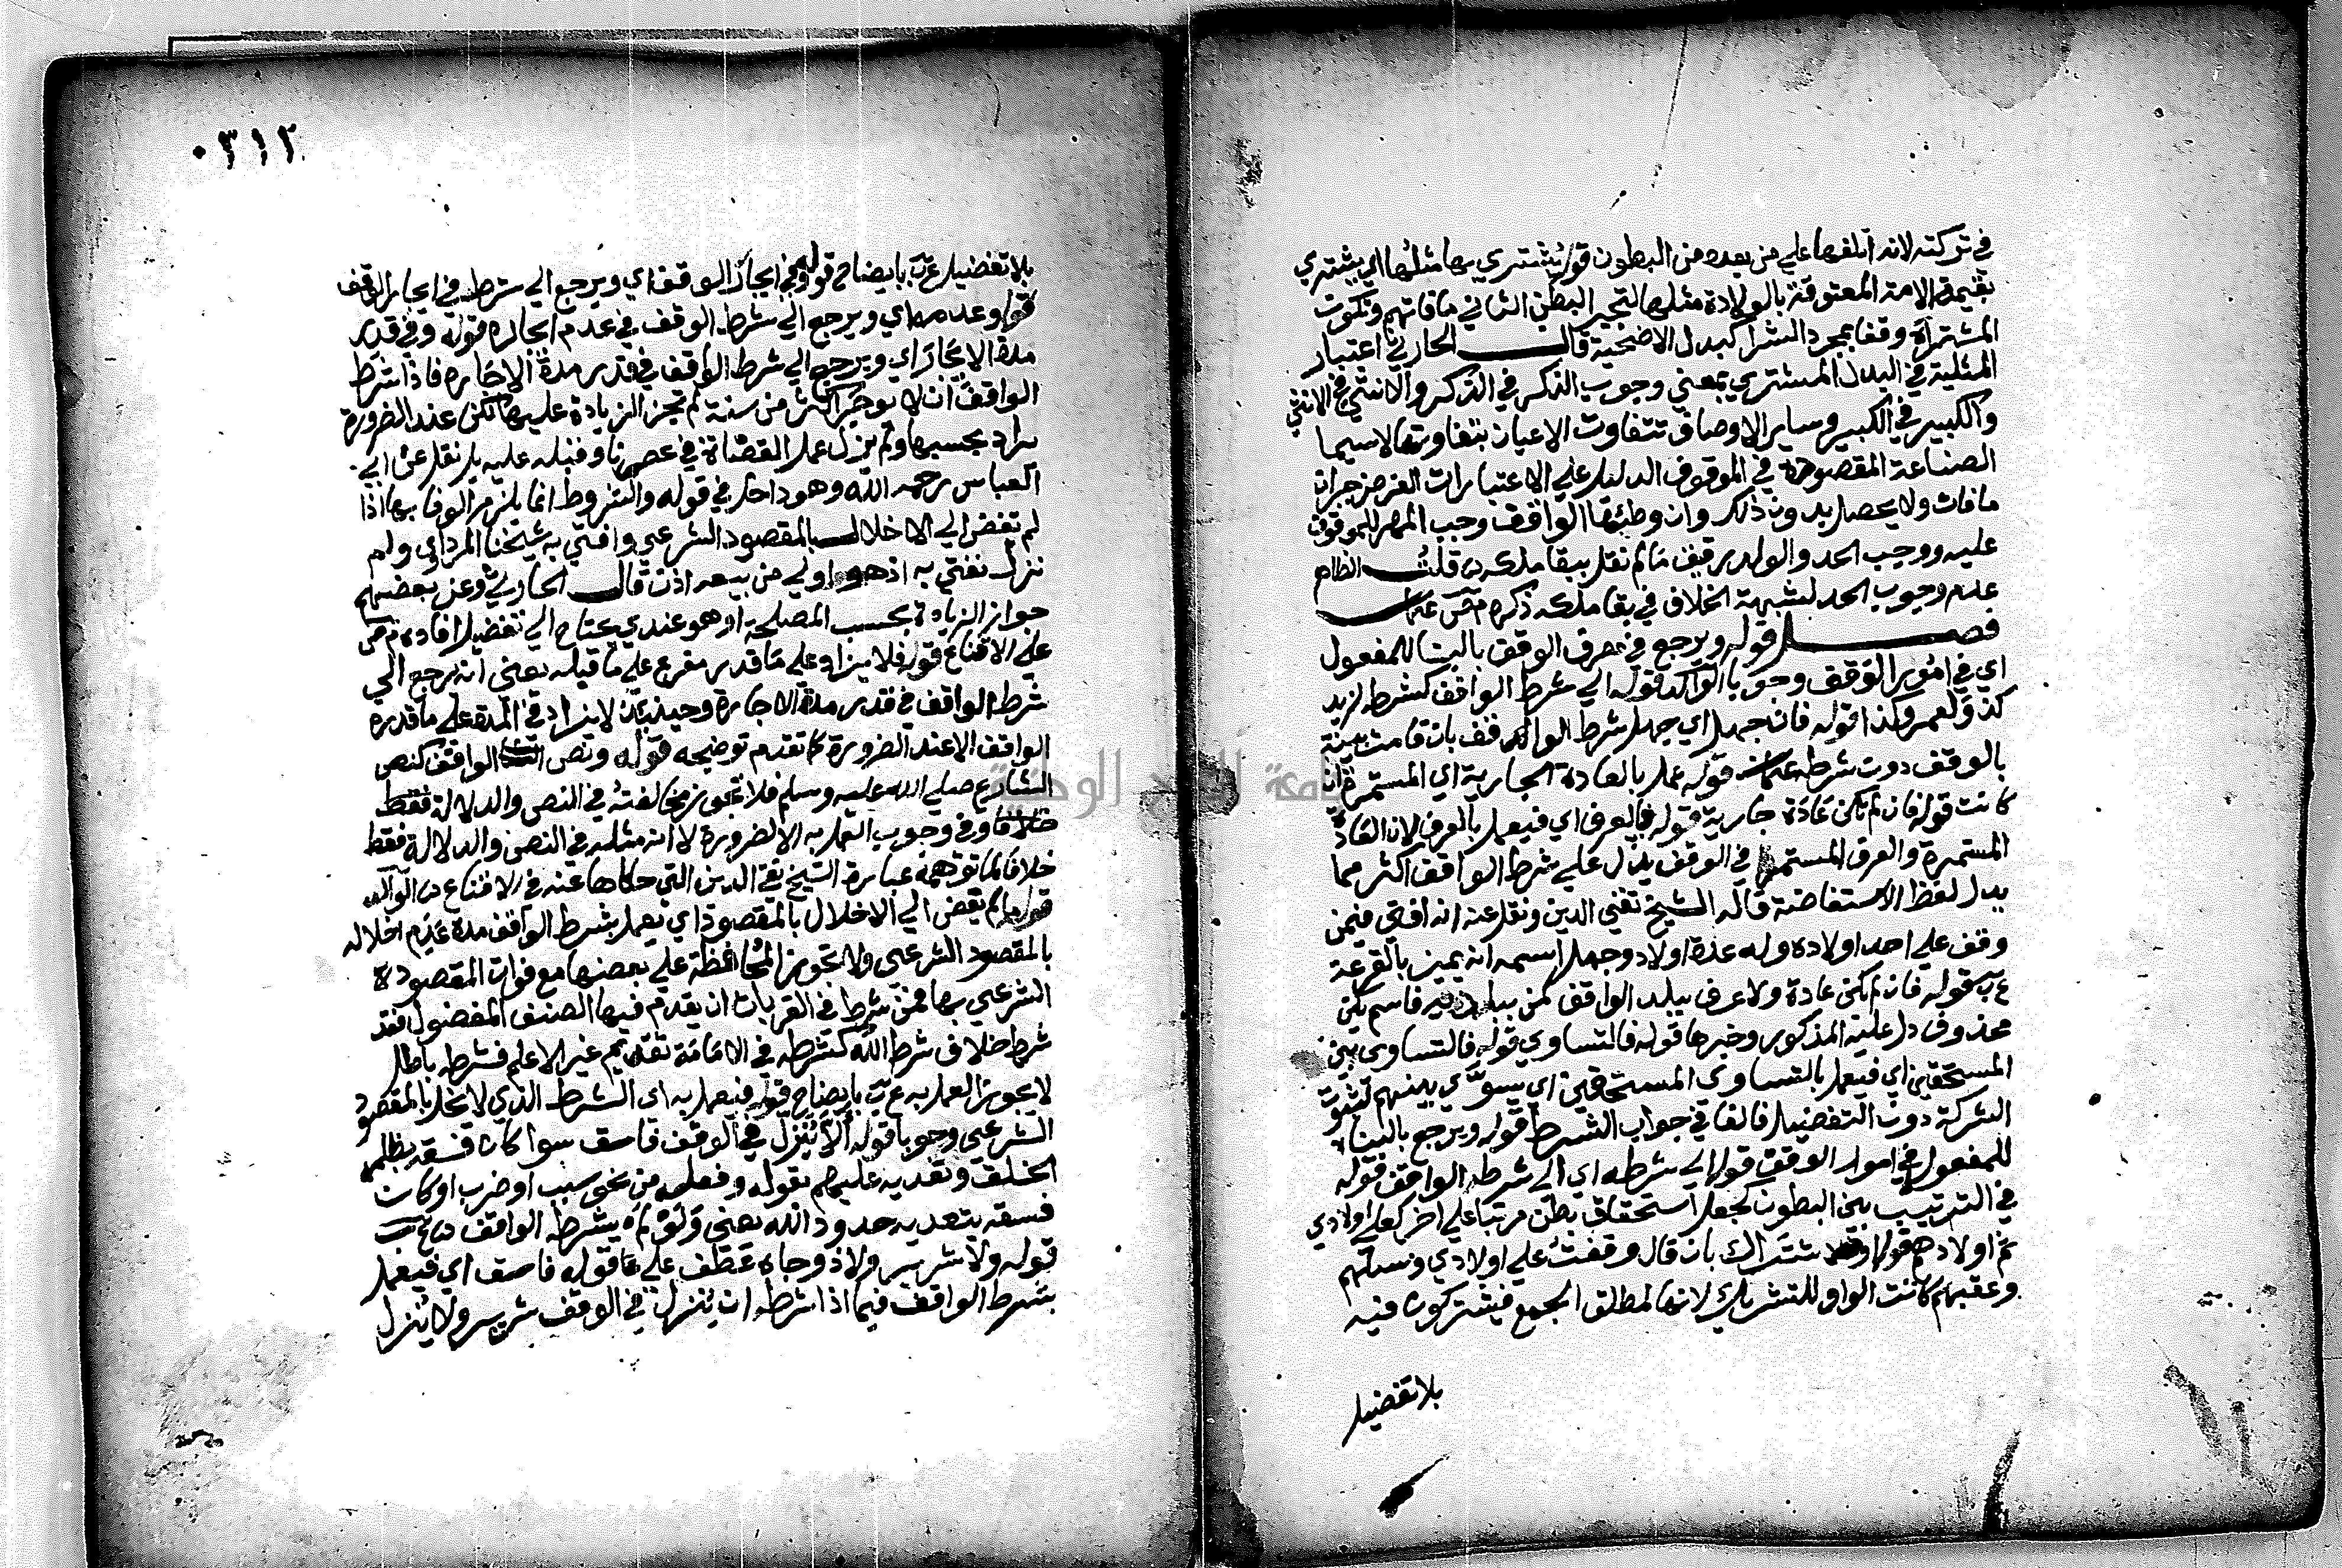 في تركته لانه اتلفها على من بعده من البطون قوله يشتري بها مثلها اي يشتري
بقيمة الامة المعتوقة بالولادة مثلها لتجبر البطن الثاني ما فاتهم وتكون
المشتراة وقفا بمجرد الشرا كبدل الاضحية قال الحارثي اعتبار
المثلية في البدل المشتري بمعني وجوب الذكر في الذكر والانثي في الانثي
والكبير في الكبير وساير الاوصاف تتفاوت الاعيان بتفاوتها لاسيما
الصناعة المقصودة في الموقوف الدليل على الاعتبارات الغرض جبران
مافات ولا يحصل بدون ذلك وان وطئها الواقف وجب المهر للموقوف
عليه ووجب الحد والولد رقيق مالم نقل ببقا ملكه قلت الظاهر
عدم وجوب الحد لشبهة الخلاف في بقا ملكه ذكره م ص
فصل قوله ويرجع في مصرف الوقف بالبنا للمفعول
اي في امور الوقف وجوبا قوله الي شرط الواقف كشرط لزيد
كذا ولعمرو كذا قوله فان جهل اي جهل شرط الواقف بان قامت بينة
بالوقف دون شرطه قوله عمل بالعادة الجارية اي المستمرة ان
كانت قوله فان لم تكن عادة جارية قوله فبالعرف اي فيعمل بالعرف لان العادة
المستمرة والعرف المستمر في الوقف يدل على شرط الواقف اكثر مما
يدل لفظ الاستفاضة قاله الشيخ تقي الدين ونقل عنه انه افتي فيمن
وقف على احد اولاده وله عدة اولاد وجهل اسمه انه يميز بالقرعة
ع ب قوله فان لم تكن عادة ولا عرف ببلد الواقف كمن ببلد فاسم تكن
محذوف دل عليه المذكور وخبرها قوله فالتساوي قوله فالتساوي بين
المستحقين اي فيعمل بالتساوي المستحقين اي يسوي بينهم لثبوت
الشركة دون التفضيل فالفا في جواب الشرط قوله ويرجع بالبناء
للمفعول في امور الوقف قوله الي شرطه اي الي شرط الواقف قوله
في الترتيب بين البطون كجعل استحقاق بطن مرتبا على اخر كعلى اولادي
ثم اولادهم قوله اشتراك بان قال وقفت على اولادي ونسلهم
وعقبهم كانت الواو للتشريك لانها لمطلق الجمع فيشتركون فيه
بلا تفضيل
٠٣١٢
بلا تفضيل ع ب بايضاح قوله وفي ايجار الوقف اي ويرجع الي شرطه في ايجار الوقف
قوله وعدمه اي ويرجع الي شرط الوقف في عدم ايجاره قوله وفي قدر
مدة الايجار اي ويرجع الي شرط الواقف في قدر مدة الاجارة فاذا شرط
الواقف ان لا يوجر اكثر من سنة لم تجز الزيادة عليها لكن عند الضرورة
يزاد بحسبها ولم يزل عمل القضاة في عصرنا وقبله عليه بل نقل عن ابي
العباس رحمه الله وهو داخل في قوله والشروط انما يلزم الوفا بها اذا
لم تفض الي الاخلال بالمقصود الشرعي وافتي به شيخنا المرداوي ولم
نزل نفتي به اذ هو اولي من بيعه اذن قال الحارثي وعن بعضهم
جواز الزيادة بحسب المصلحة وهو عندي يحتاج الي تفصيل افاده م ص
على الاقناع قوله فلا يزاد على ما قدر مفرع على ما قبله يعني انه يرجع الي
شرط الواقف في قدر مدة الاجارة وحينئذ لا يزاد في المدة على ما قدره
الواقف الا عند الضرورة كما تقدم توضيحه قوله ونص الواقف كنص
الشارع صلي الله عليه وسلم فلا تجوز مخالفته في النص والدلالة فقط
خلافا وفي وجوب العمل به الا لضرورة لانه مثله في النص والدلالة فقط
خلافا لما توهمه عبارة الشيخ تقي الدين التي حكاها عنه في الاقناع
قوله مالم يفض الي الاخلال بالمقصود اي يعمل بشرط الواقف مدة عدم اخلاله
بالمقصود الشرعي ولا تجوز المحافظة على بعضها مع فوات المقصود
الشرعي بها فمن شرط في القربات ان يقدم فيها الصنف المفضول فقد
شرط خلاف شرط الله كشرطه في الامامة تقديم غير الاعلم فشرطه باطل
لا يجوز العمل به ع ب بايضاح قوله فيعمل به اي الشرط الذي لا يخل بالمقصود
الشرعي وجوبا قوله الا ينزل في الوقف فاسق سوا كان فسقه بظلمه
الخلق وتعديه عليهم بقوله وفعله من نحو سب او ضرب او كان
فسقه بتعديه حدود الله يعني ولو لم يشترطه الواقف
قوله ولا شرير ولا ذو جاه عطف على قوله فاسق اي فيعمل
بشرط الواقف فيما اذا شرط ان ينزل في الوقف شرير ولا ينزل